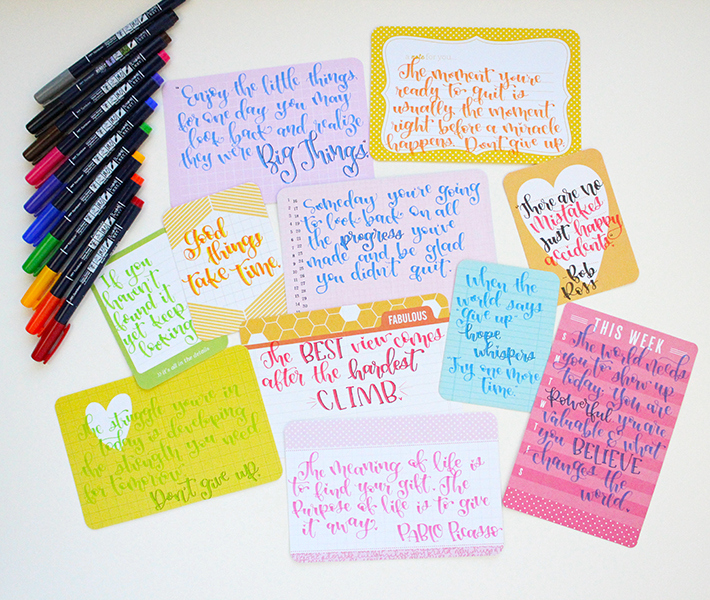 "Enjoy the little things,
for one day you may
look back and realize
they were Big Things.
The moment you're
ready to quit is
usually the moment
right before a miracle
happens. Don't give up.
Good
things
take time.
Someday you're going
to look back on all
the progress you've
made and be glad
you didn't quit.
"There are no
mistakes
just happy
accidents."
-Bob
Ross
If you
haven't
found it
yet keep
looking.
it's all in the details
FABULOUS
The BEST view comes
after the hardest
CLIMB.
When the
world says
give up
hope
whispers
Try one more
time.
THIS WEEK
S
M
T
W
T
F
S
The world needs
you to show up
today. You are
Powerful you are
valuable & what
you BELIEVE
changes the
world.
The struggle you're in
today is developing
the strength you need
for tomorrow.
Don't give up.
The meaning of life is
to find your gift. The
Purpose of life is to give
it away.
PABLO Picasso